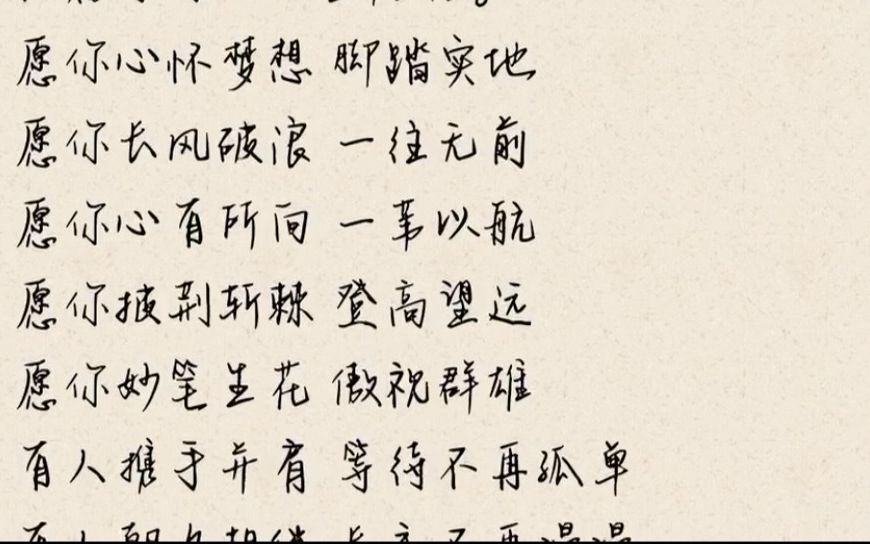 愿你心怀梦想 脚踏实地
愿你长风破浪 一往无前
愿你心有所向 一苇以航
愿你披荆斩棘 登高望远
愿你妙笔生花 傲视群雄
有人携手并肩 等待不再孤单